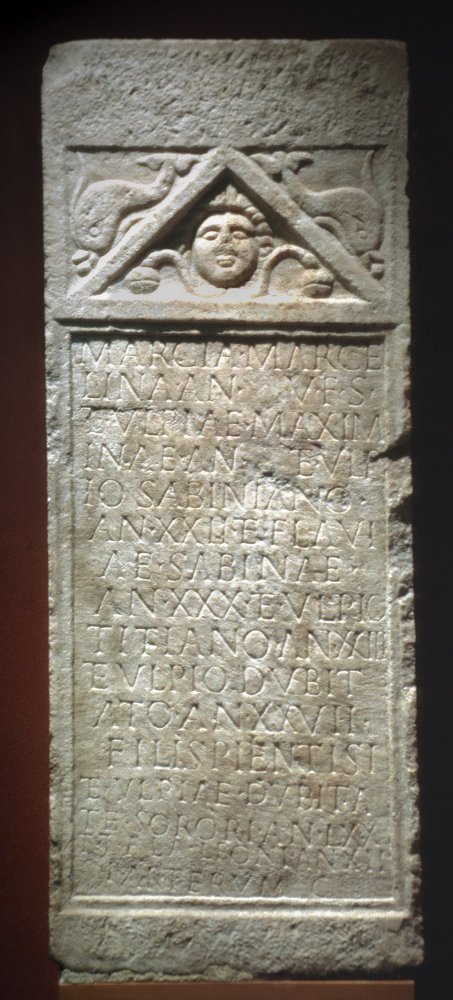 MARCIA·MARCE
LINA·AN· V·F·S·
E·VLPIAE·MAXIM
INAE·AN E·VLP
IO SABINIANO
AN·XXIII·E·FLAVI
AE·SABINAE·
AN·XXX·E·VLPIO
TITIANO·AN·XIII
E·VLPIO·DVBIT
ATO·AN·XXVII·
FILIS·PIENTISI
E·VLPIAE·DVBITA
TE·SORORI·AN·LXX
AN·XII